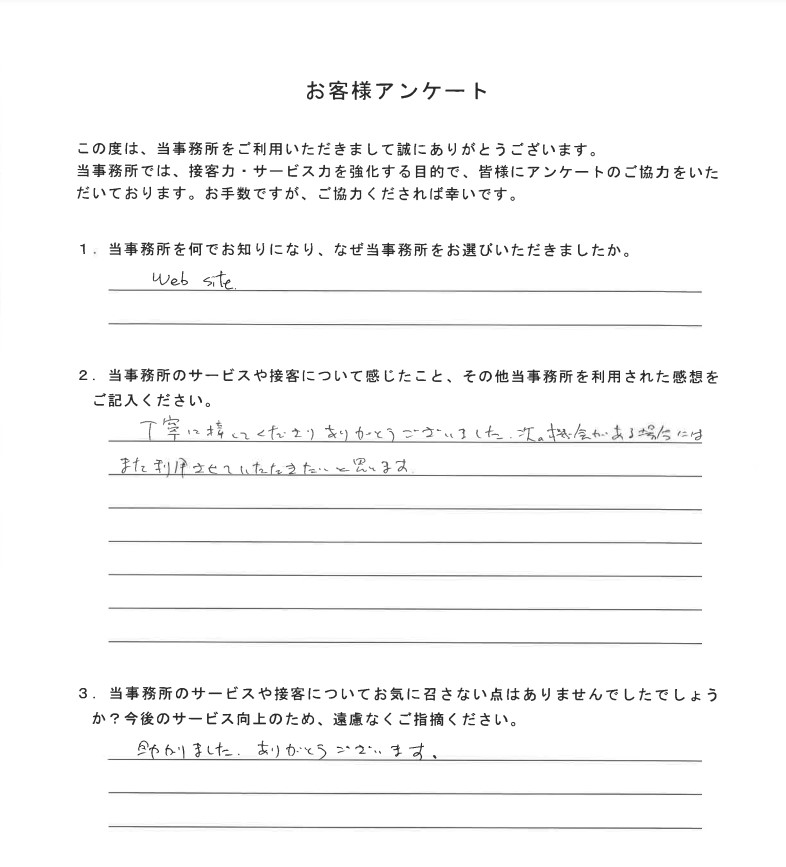 お客様アンケート
この度は、当事務所をご利用いただきまして誠にありがとうございます。
当事務所では、接客力・サービス力を強化する目的で、皆様にアンケートのご協力をいた
だいております。お手数ですが、ご協力くだされば幸いです。
１．当事務所を何でお知りになり、なぜ当事務所をお選びいただきましたか。
Web site.
２．当事務所のサービスや接客について感じたこと、その他当事務所を利用された感想を
ご記入ください。
丁寧に接してくださりありがとうございました。次の機会がある場合には
また利用させていただきたいと思います。
３．当事務所のサービスや接客についてお気に召さない点はありませんでしたでしょう
か？今後のサービス向上のため、遠慮なくご指摘ください。
助かりました。ありがとうございます。